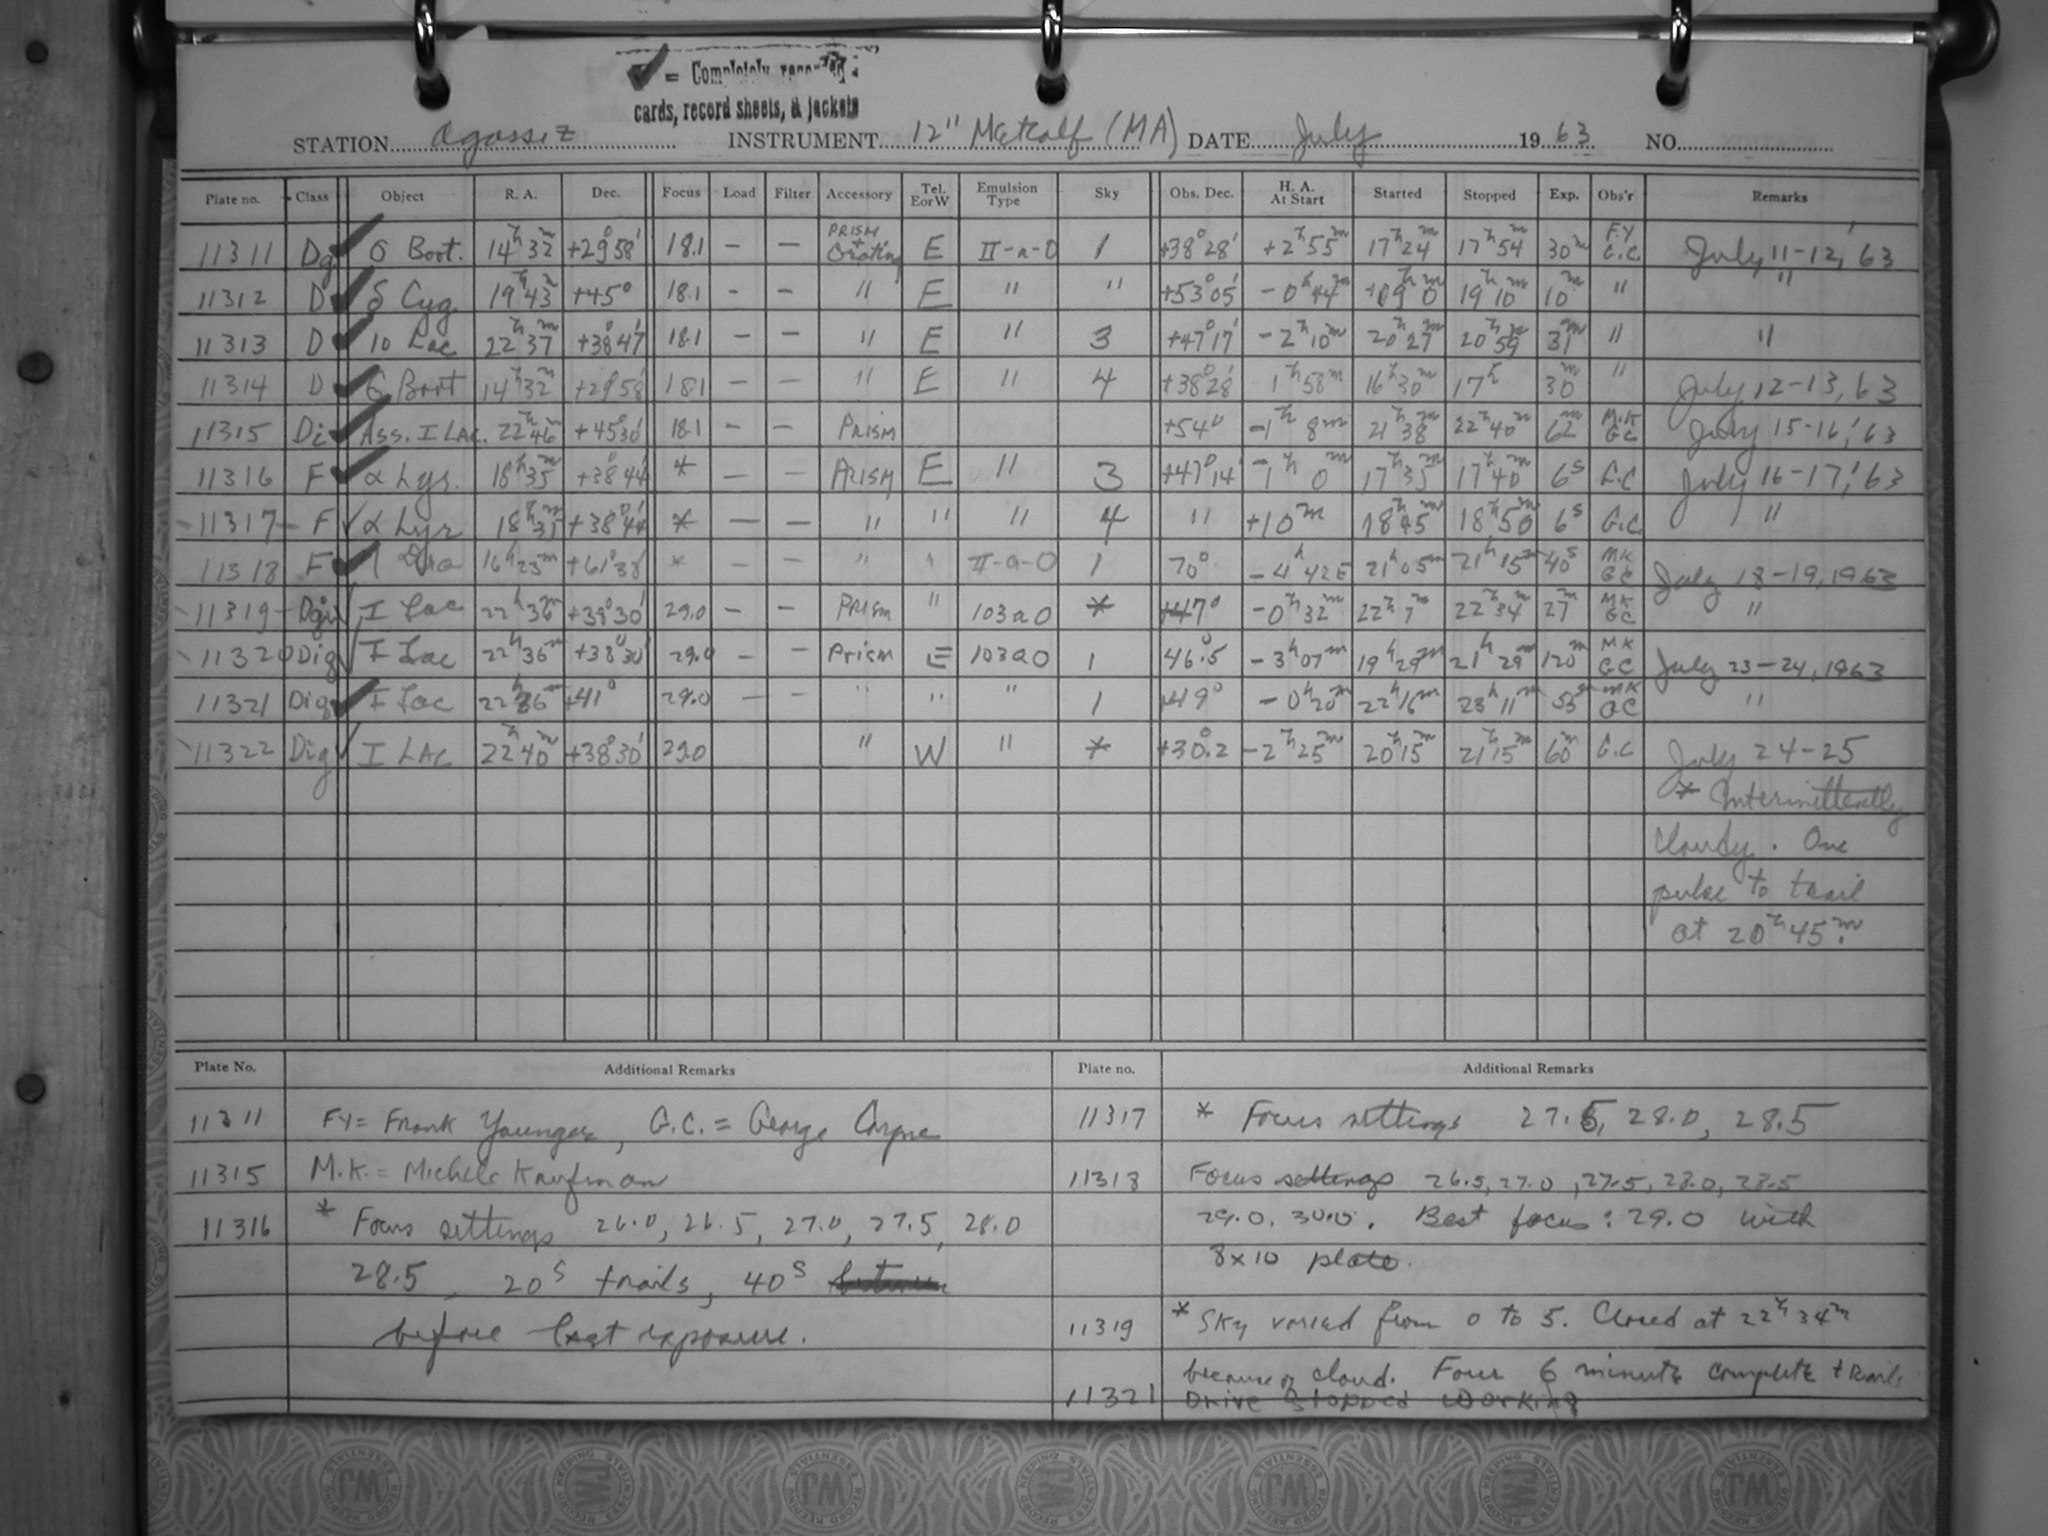 ✓ = Completely recorded
cards, record sheets, & jackets
STATION Agassiz INSTRUMENT 12" Metcalf (MA) DATE July 1963 NO.
Plate no. Class Object R. A. Dec. Focus Load Filter Accessory Tel. E or W Emulsion Type Sky Obs. Dec. H. A. At Start Started Stopped Exp. Obs'r Remarks
11311 Dg ✓ σ Boot. 14h32m +29°58' 18.1 – – PRISM + Grating E II-a-O 1 +38°28' +2h55m 17h24m 17h54m 30m F.Y G.C. July 11-12, '63
11312 D ✓ δ Cyg 19h43m +45° 18.1 – – " E " " +53°05' -0h44m 19h0m 19h10m 10m " "
11313 D ✓ 10 Lac 22h37m +38°47' 18.1 – – " E " 3 +47°17' -2h10m 20h27m 20h59m 31m " "
11314 D ✓ σ Boot 14h32m +29°58' 18.1 – – " E " 4 +38°28' 1h58m 16h30m 17h 30m " July 12-13, 63
11315 Di ✓ Ass. I LAC. 22h46m +45°30' 18.1 – – PRISM +54° -1h 8m 21h38m 22h40m 62m M.K GC July 15-16, '63
11316 F ✓ α Lyr. 18h35m +38°44' * – – PRISM E " 3 +47°14' -1h 0m 17h35m 17h40m 6s G.C July 16-17, '63
11317 F ✓ α Lyr 18h35m +38°44' * – – " " " 4 " +10m 18h45m 18h50m 6s G.C. "
11318 F ✓ η Dra 16h23m +61°38' * – – " " II-a-O 1 70° -4h42E 21h05m 21h15m 40s MK GC July 18-19, 1963
11319 Dgi ✓ I Lac 22h36m +38°30' 29.0 – – PRISM " 103aO * +47° -0h32m 22h7m 22h34m 27m MK GC "
11320 Dig ✓ I Lac 22h36m +38°30' 29.0 – – Prism E 103aO 1 46°.5 -3h07m 19h29m 21h29m 120m MK GC July 23-24, 1963
11321 Dig ✓ I Lac 22h36m +41° 29.0 – – " " " 1 +49° -0h20m 22h16m 23h11m 55m MK GC "
11322 Dig ✓ I LAC 22h40m +38°30' 29.0 " W " * +30°.2 -2h25m 20h15m 21h15m 60m G.C July 24-25
* Intermittently
cloudy. One
pulse to trail
at 20h45m.
Plate No. Additional Remarks Plate no. Additional Remarks
11311 FY = Frank Younger, G.C. = George Carpne
11315 M.K. = Michele Kaufman
11316 * Focus settings 26.0, 26.5, 27.0, 27.5, 28.0
28.5, 20s trails, 40s
before last exposure.
11317 * Focus settings 27.5, 28.0, 28.5
11318 Focus settings 26.5, 27.0, 27.5, 28.0, 28.5
29.0, 30.0. Best focus: 29.0 with
8x10 plate.
11319 * Sky varied from 0 to 5. Closed at 22h34m
because of cloud. Four 6 minute complete trails
11321 Drive stopped working